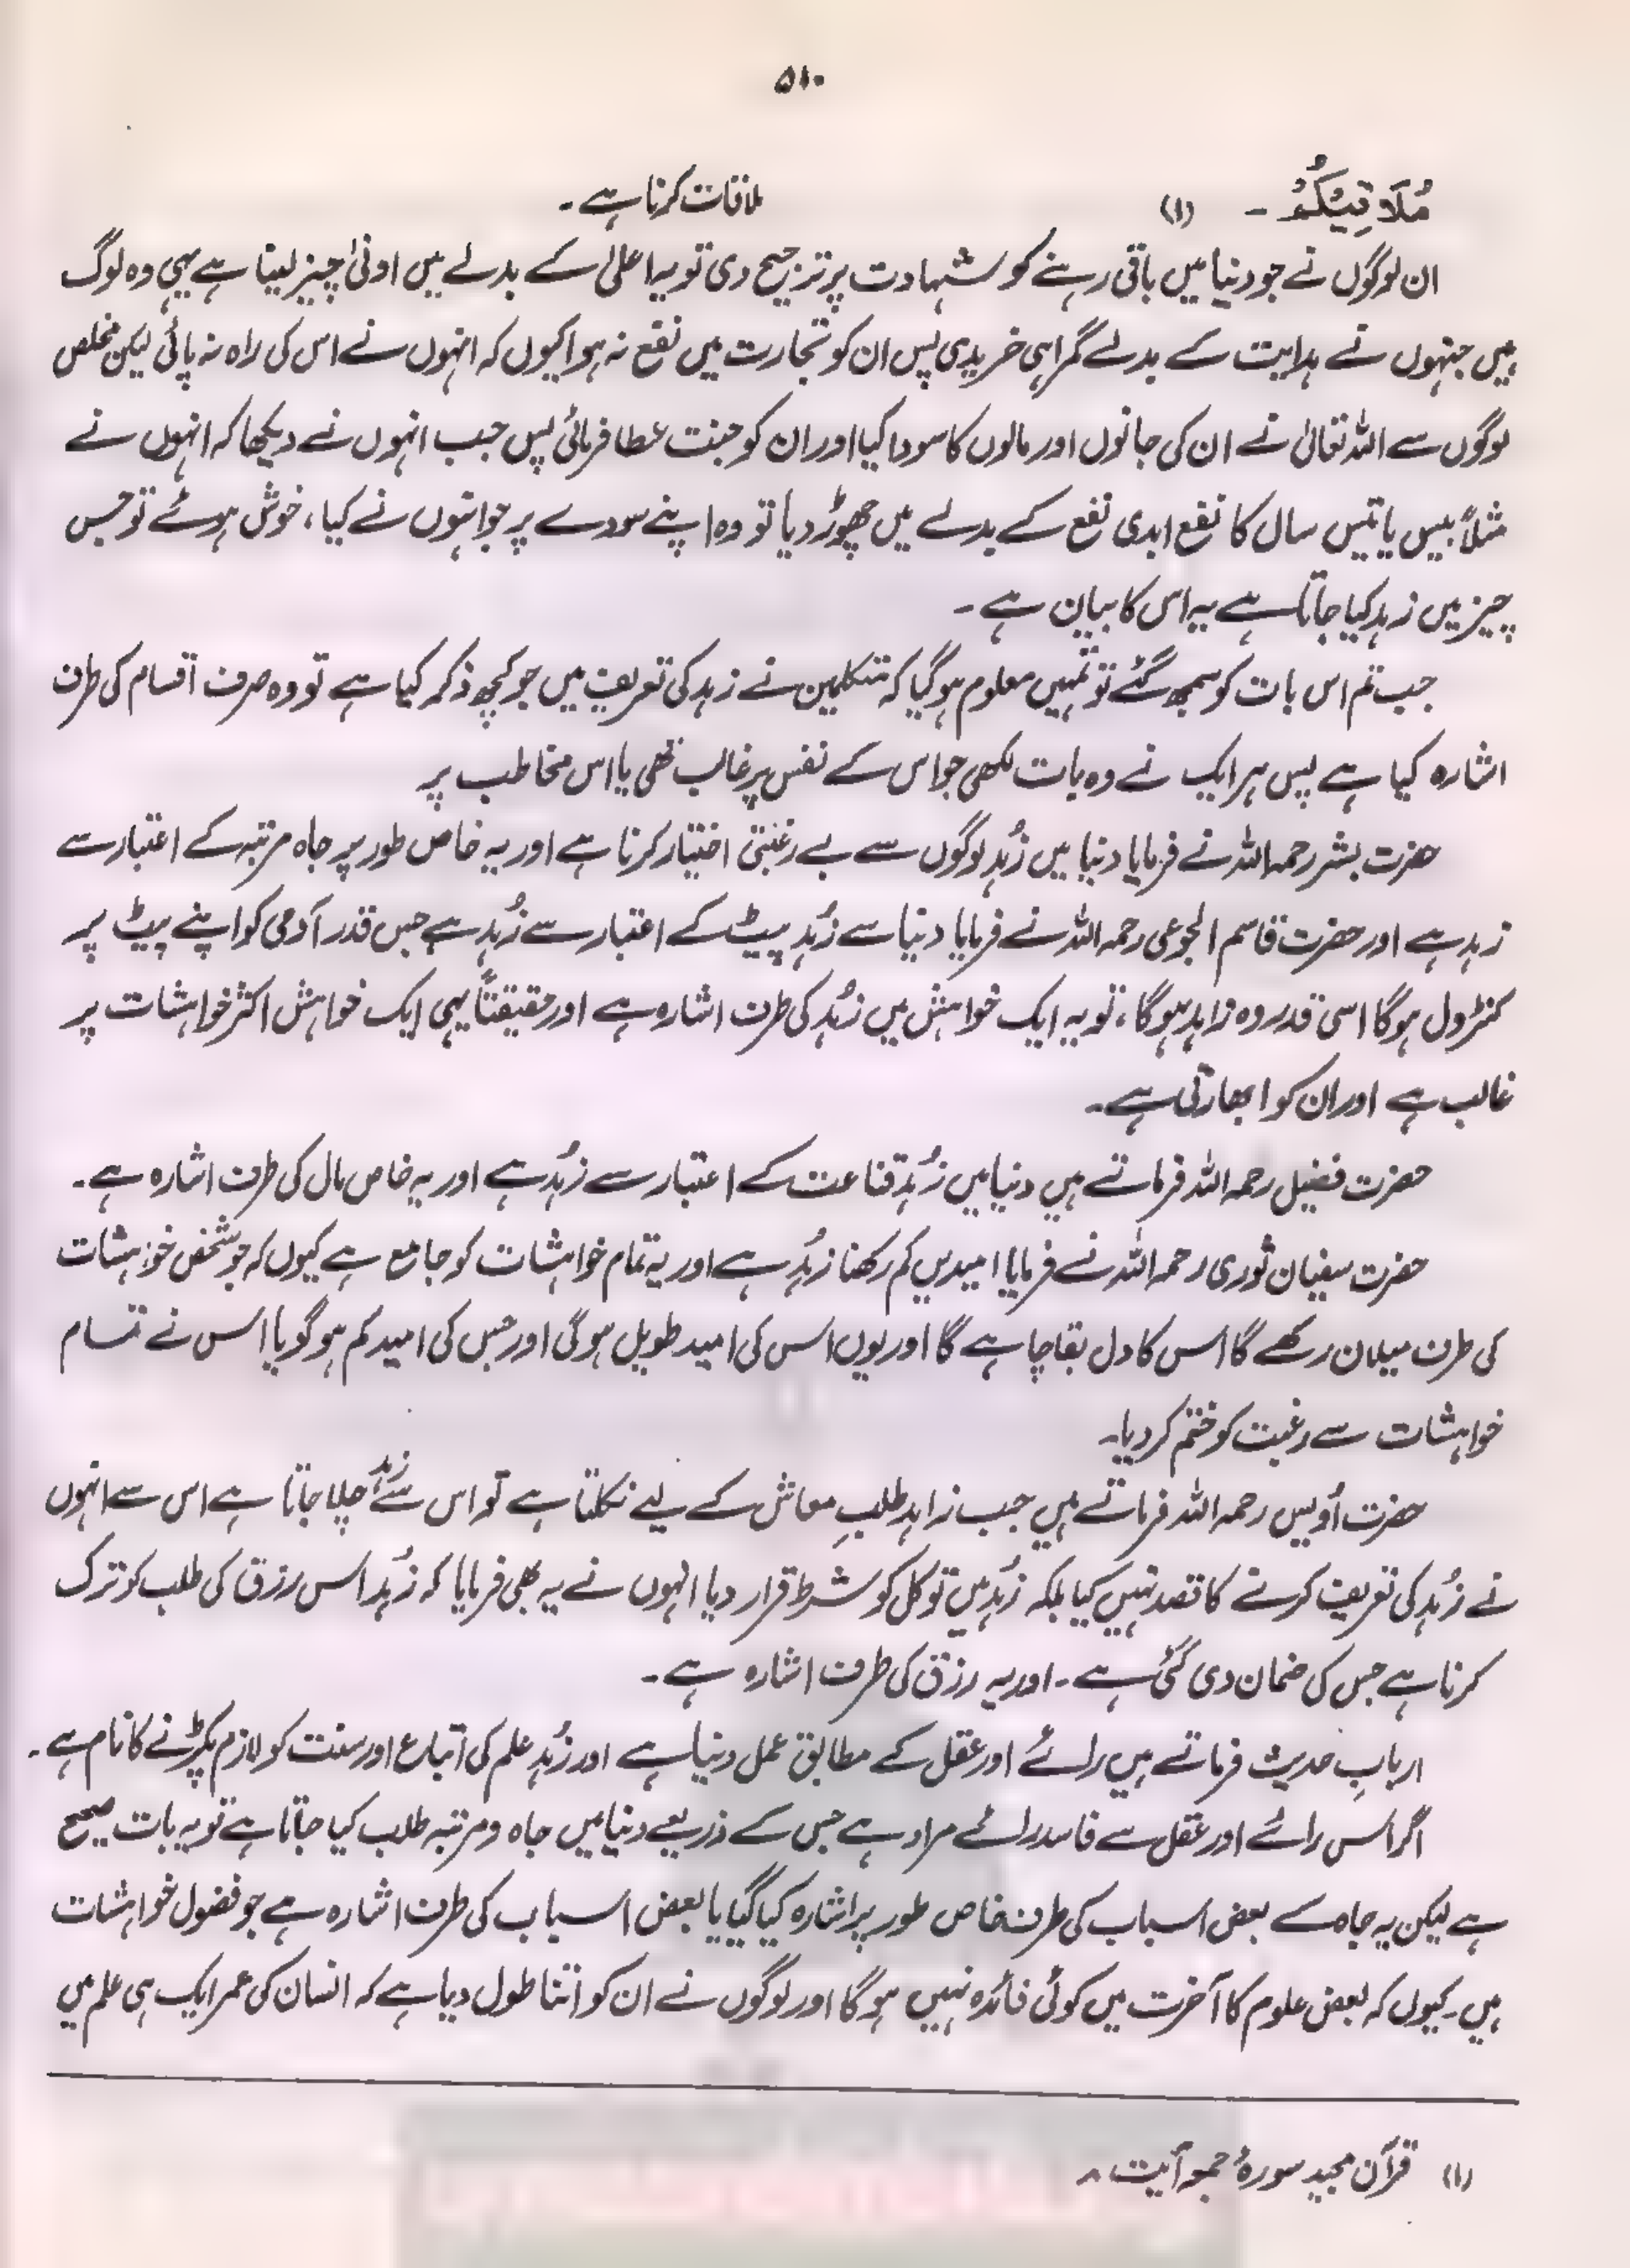 ۵۱۰
مُلَاقِیْکُمْ ۔ (۱) ملاقات کرنا ہے ۔
ان لوگوں نے جو دنیا میں باقی رہنے کو شہادت پر ترجیح دی تو یہ اعلیٰ کے بدلے میں ادنیٰ چیز لینا ہے یہی وہ لوگ
ہیں جنہوں نے ہدایت کے بدلے گمراہی خریدی پس ان کو تجارت میں نفع نہ ہوا کیوں کہ انہوں نے اس کی راہ نہ پائی لیکن مخلص
لوگوں سے اللہ تعالیٰ نے ان کی جانوں اور مالوں کا سودا کیا اور ان کو جنت عطا فرمائی پس جب انہوں نے دیکھا کہ انہوں نے
مثلاً بیس یا تیس سال کا نفع ابدی نفع کے بدلے میں چھوڑ دیا تو وہ اپنے سودے پر جو انہوں نے کیا ، خوش ہوئے تو جس
چیز میں زہد کیا جاتا ہے یہ اس کا بیان ہے ۔
جب تم اس بات کو سمجھ گئے تو تمہیں معلوم ہو گیا کہ متکلمین نے زہد کی تعریف میں جو کچھ ذکر کیا ہے تو وہ صرف اقسام کی طرف
اشارہ کیا ہے پس ہر ایک نے وہ بات لکھی جو اس کے نفس پر غالب تھی یا اس مخاطب پر
حضرت بشر رحمہ اللہ نے فرمایا دنیا میں زُہد لوگوں سے بے رغبتی اختیار کرنا ہے اور یہ خاص طور پر جاہ مرتبہ کے اعتبار سے
زہد ہے اور حضرت قاسم الجوعی رحمہ اللہ نے فرمایا دنیا سے زُہد پیٹ کے اعتبار سے زُہد ہے جس قدر آدمی کو اپنے پیٹ پر
کنٹرول ہوگا اسی قدر وہ زاہد ہوگا ، تو یہ ایک خواہش میں زُہد کی طرف اشارہ ہے اور حقیقتاً یہی ایک خواہش اکثر خواہشات پر
غالب ہے اور ان کو ابھارتی ہے۔
حضرت فضیل رحمہ اللہ فرماتے ہیں دنیا میں زُہد قناعت کے اعتبار سے زہُد ہے اور یہ خاص مال کی طرف اشارہ ہے ۔
حضرت سفیان ثوری رحمہ اللہ نے فرمایا امیدیں کم رکھنا زہُد ہے اور یہ تمام خواہشات کو جامع ہے کیوں کہ جو شخص خواہشات
کی طرف میلان رکھے گا اس کا دل بقا چاہے گا اور یوں اس کی امید طویل ہوگی اور جس کی امید کم ہو گویا اس نے تمام
خواہشات سے رغبت کو ختم کر دیا۔
حضرت اُویس رحمہ اللہ فرماتے ہیں جب زاہد طلبِ معاش کے لیے نکلتا ہے تو اس سے زہد چلا جاتا ہے اس سے انہوں
نے زُہد کی تعریف کرنے کا قصد نہیں کیا بلکہ زُہد میں توکل کو شرط قرار دیا انہوں نے یہ بھی فرمایا کہ زُہد اس رزق کی طلب کو ترک
کرنا ہے جس کی ضمان دی گئی ہے ۔ اور یہ رزق کی طرف اشارہ ہے ۔
اربابِ حدیث فرماتے ہیں رائے اور عقل کے مطابق عمل دنیا ہے اور زُہد علم کی اتباع اور سنت کو لازم پکڑنے کا نام ہے ۔
اگر اس رائے اور عقل سے فاسد رائے مراد ہے جس کے ذریعے دنیا میں جاہ و مرتبہ طلب کیا جاتا ہے تو یہ بات صحیح
ہے لیکن یہ جاہ کے بعض اسباب کی طرف خاص طور پر اشارہ کیا گیا یا بعض اسباب کی طرف اشارہ ہے جو فضول خواہشات
ہیں۔ کیوں کہ بعض علوم کا آخرت میں کوئی فائدہ نہیں ہو گا اور لوگوں نے ان کو اتنا طول دیا ہے کہ انسان کی عمر ایک ہی علم میں
(۱) قرآن مجید سورۂ جمعہ آیت ۸